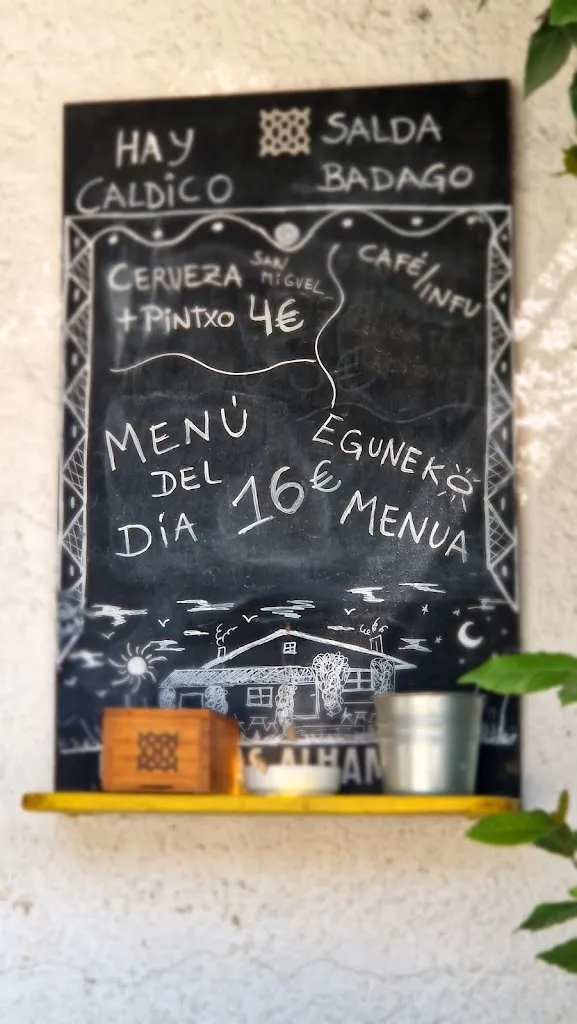 HAY
CALDICO
SALDA
BADAGO
CERVEZA SAN MIGUEL
+ PINTXO 4€
CAFÉ/INFU
MENÚ
DEL
DÍA
16€
EGUNEKO
MENUA
S ALHAM